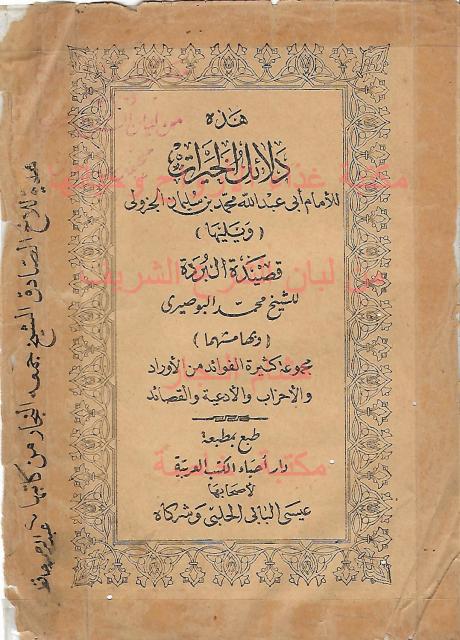 هذه
دلائل الخيرات
للأمام أبى عبدالله محمد بن سليمان الجزولى
(ويليها)
قصيدة البردة
للشيخ محمد البوصيرى
(وبهامشهما)
مجموعة كثيرة الفوائد من الأوراد
والأحزاب والأدعية والقصائد
طبع بمطبعة
دار احياء الكتب العربية
لأصحابها
عيسى البابى الحلبى وشركاه
هدية للأخ الصادق الشيخ جمعه النجار من كاتبها
مكتبة
من لبان الشرح الشريف
هشام النجار
مكتبة